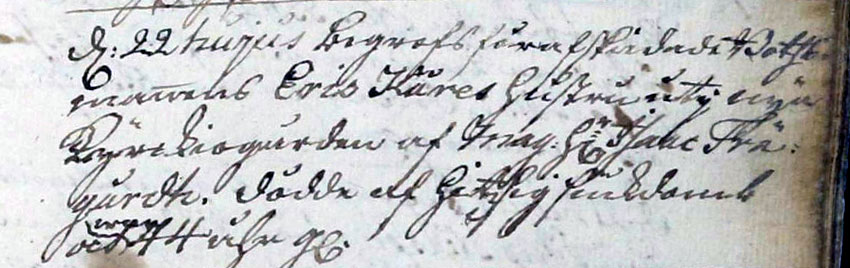 d: 22 hujus begrofs för afskiedade Botsˢ-
mannens Eric Kåres hustru uti nya
Kyrckiogården af Mag: Hʳ Isaac Trä-
gårdh. dödde af hitsig siukdomb
och war 44 åhr gl.